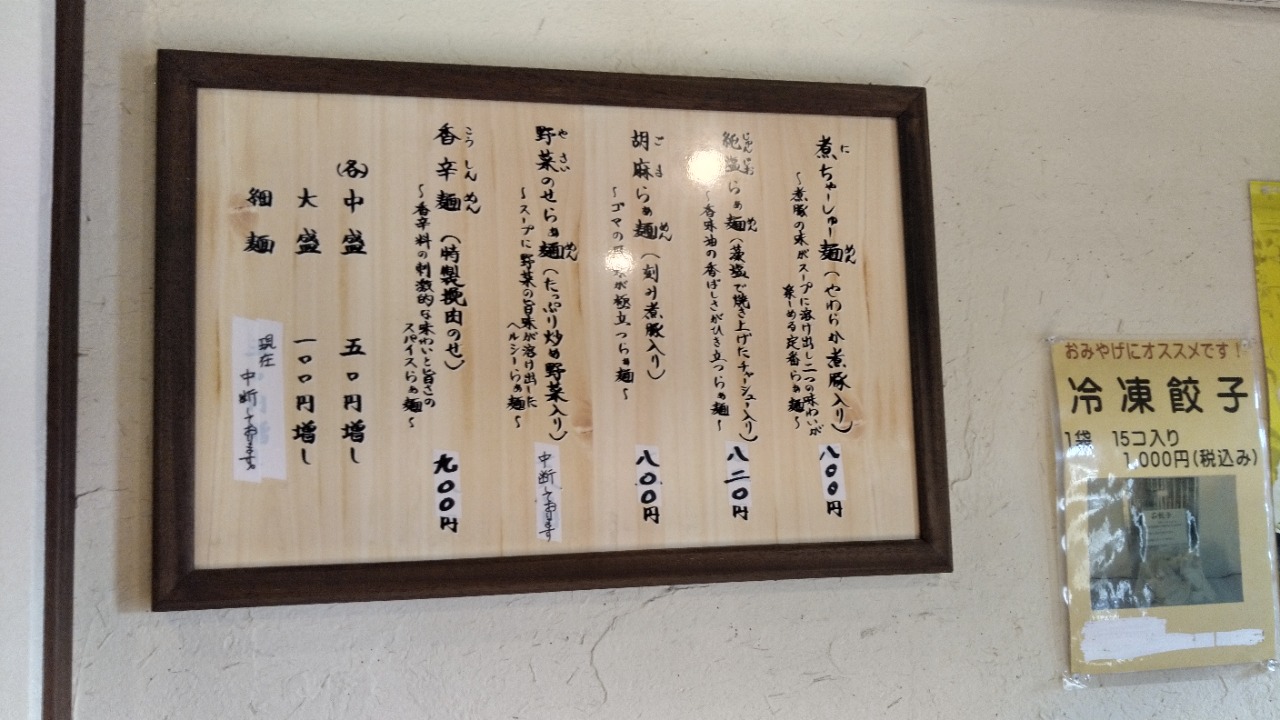 煮ちゃーしゅー麺（やわらか煮豚入り）八〇〇円
に めん
～煮豚の味がスープに溶け出し二つの味わいが
楽しめる定番らぁ麺～
純塩らぁ麺（藻塩で焼き上げたチャーシュー入り）八二〇円
めん
～香味油の香ばしさがひき立つらぁ麺～
胡麻らぁ麺（刻み煮豚入り）八〇〇円
ごま めん
～ゴマの 味が極立つらぁ麺～
野菜のせらぁ麺（たっぷり炒め野菜入り）中断しております
やさい めん
～スープに野菜の旨味が溶け出した
ヘルシーらぁ麺～
香辛麺（特製挽肉のせ）九〇〇円
こうしんめん
～香辛料の刺激的な味わいと旨さの
スパイスらぁ麺～
（各）中盛 五〇円増し
大盛 一〇〇円増し
細麺 現在
中断しております。
おみやげにオススメです！
冷凍餃子
1袋 15コ入り
1,000円(税込み)